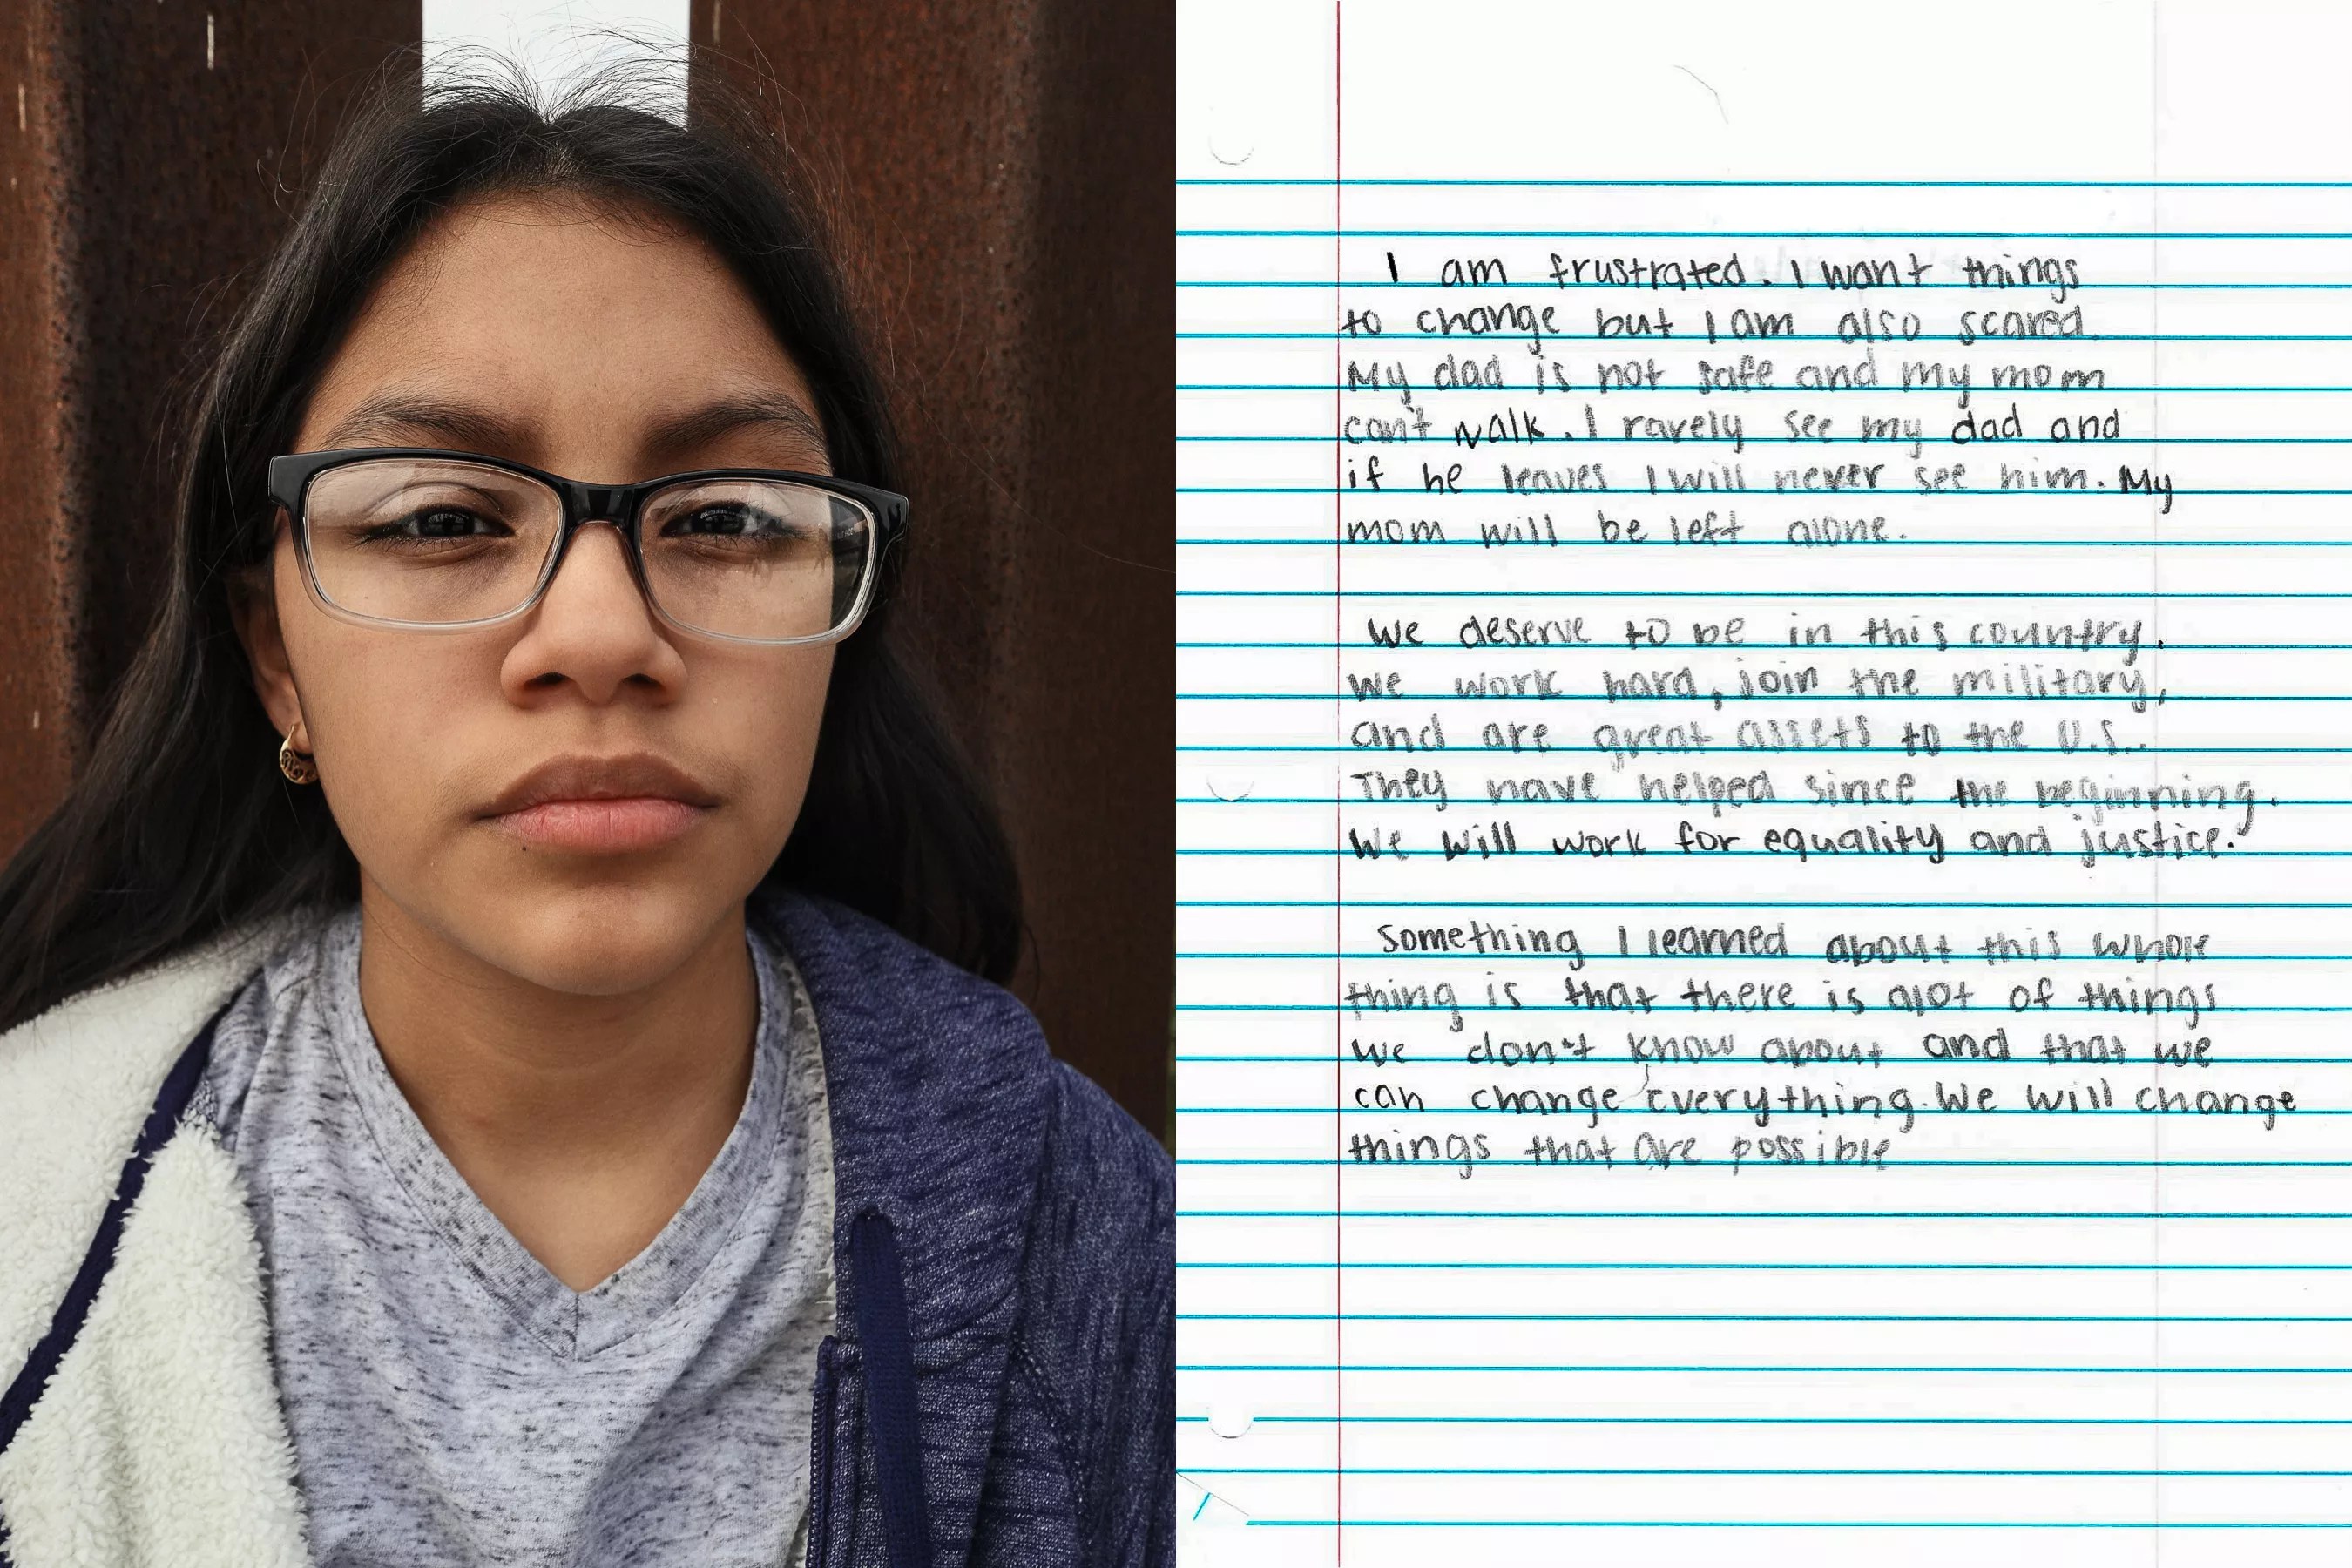 I am frustrated. I want things
to change but I am also scared.
My dad is not safe and my mom
can't walk. I rarely see my dad and
if he leaves I will never see him. My
mom will be left alone.
We deserve to be in this country.
We work hard, join the military,
and are great assets to the U.S..
They have helped since the beginning.
We will work for equality and justice.
Something I learned about this whole
thing is that there is alot of things
we don't know about and that we
can change everything. We will change
things that are possible